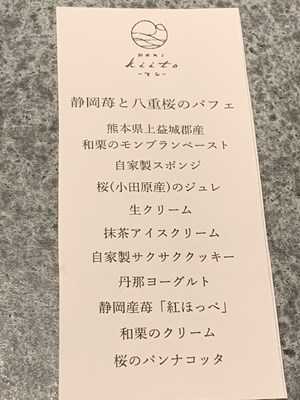 kiito
静岡苺と八重桜のパフェ
熊本県上益城郡産
和栗のモンブランペースト
自家製スポンジ
桜(小田原産)のジュレ
生クリーム
抹茶アイスクリーム
自家製サクサククッキー
丹那ヨーグルト
静岡産苺「紅ほっぺ」
和栗のクリーム
桜のパンナコッタ